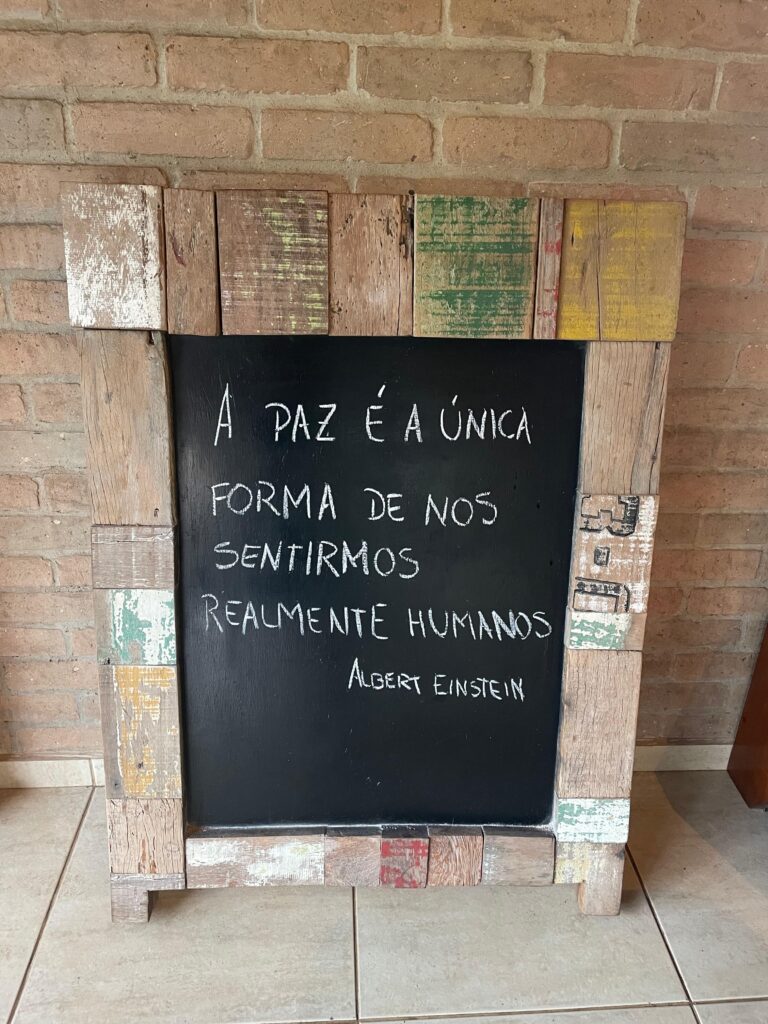 A PAZ É A ÚNICA
FORMA DE NOS
SENTIRMOS
REALMENTE HUMANOS
ALBERT EINSTEIN